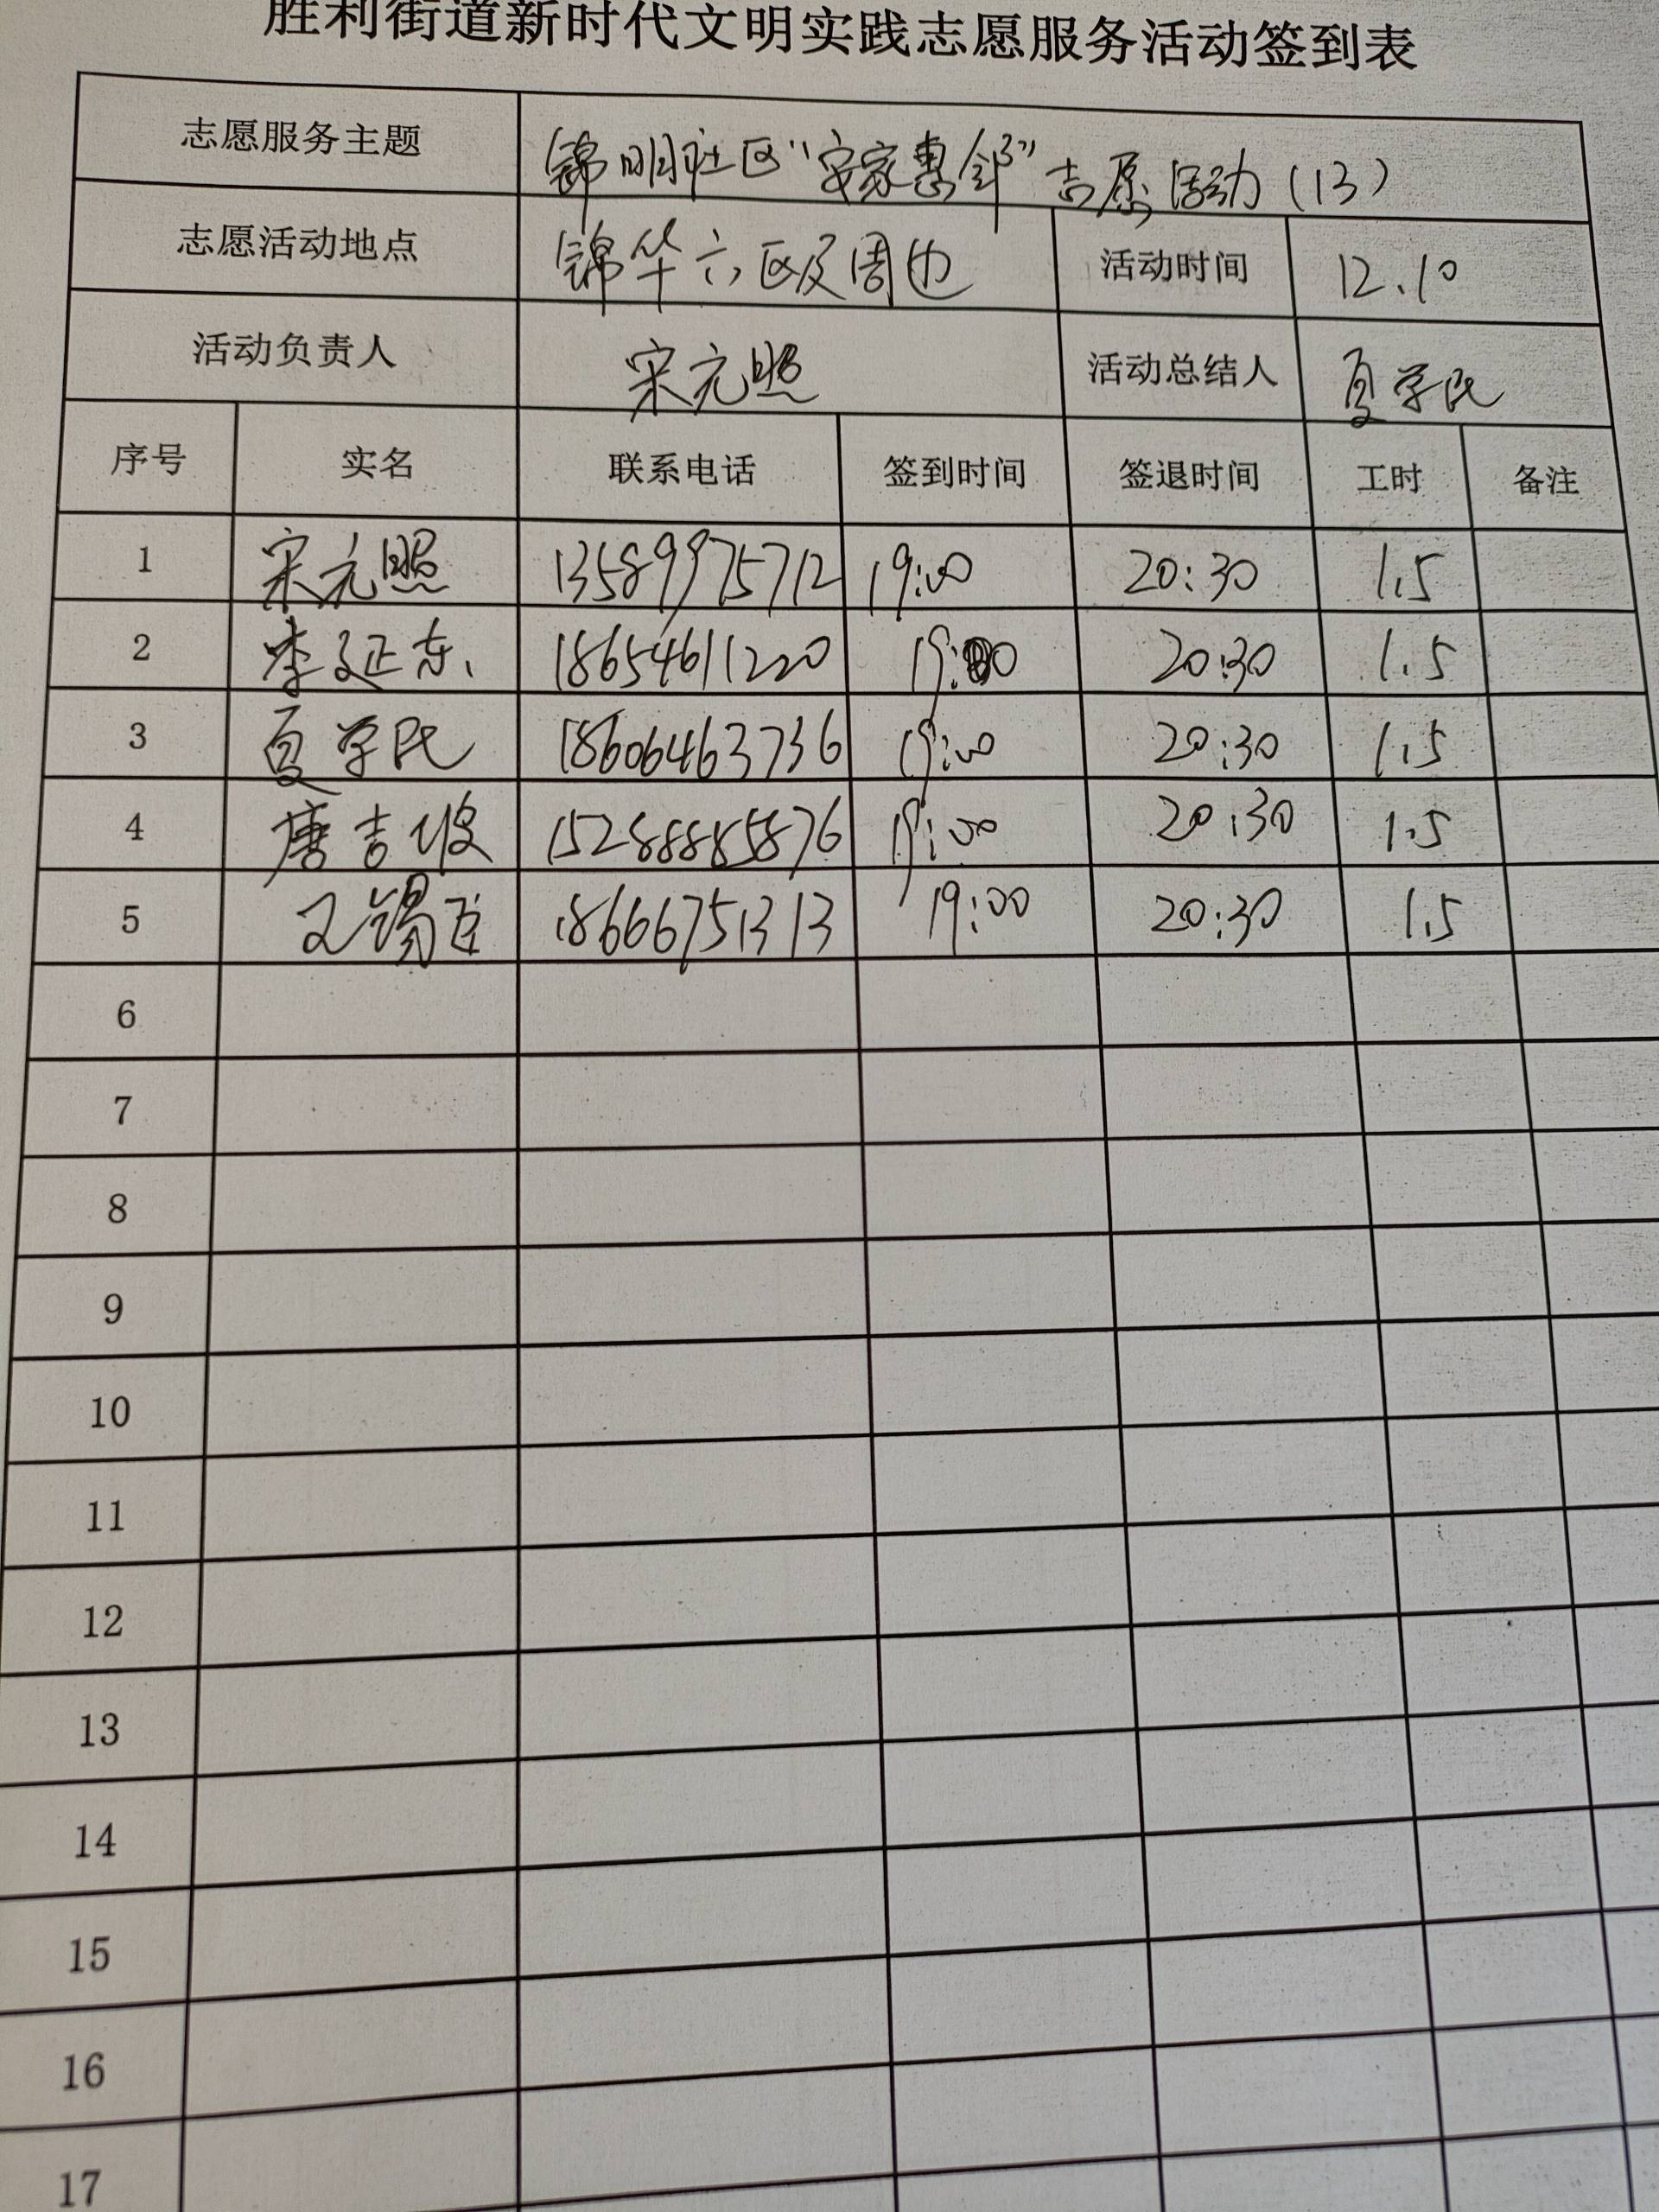 胜利街道新时代文明实践志愿服务活动签到表
志愿服务主题 锦明社区“安家惠邻”志愿活动(13)
志愿活动地点 锦华六区及周边 活动时间 12.10
活动负责人 宋元照 活动总结人 夏学民
序号 实名 联系电话 签到时间 签退时间 工时 备注
1 宋元照 13589975712 19:00 20:30 1.5
2 李延东 18654611220 19:00 20:30 1.5
3 夏学民 18606463736 19:00 20:30 1.5
4 唐吉 15288885876 19:00 20:30 1.5
5 18666751313 19:00 20:30 1.5
6
7
8
9
10
11
12
13
14
15
16
17